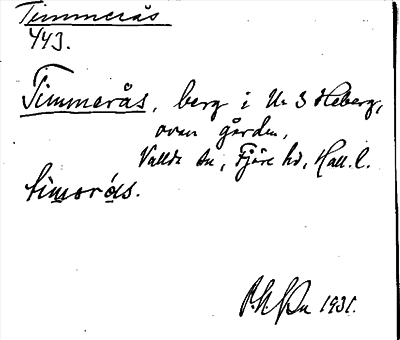 Timmerås
443.
Timmerås, berg i Nr 3 Heberg,
ovan gården,
Vallda sn, Fjäre hd, Hall. l.
timorås.
1931.